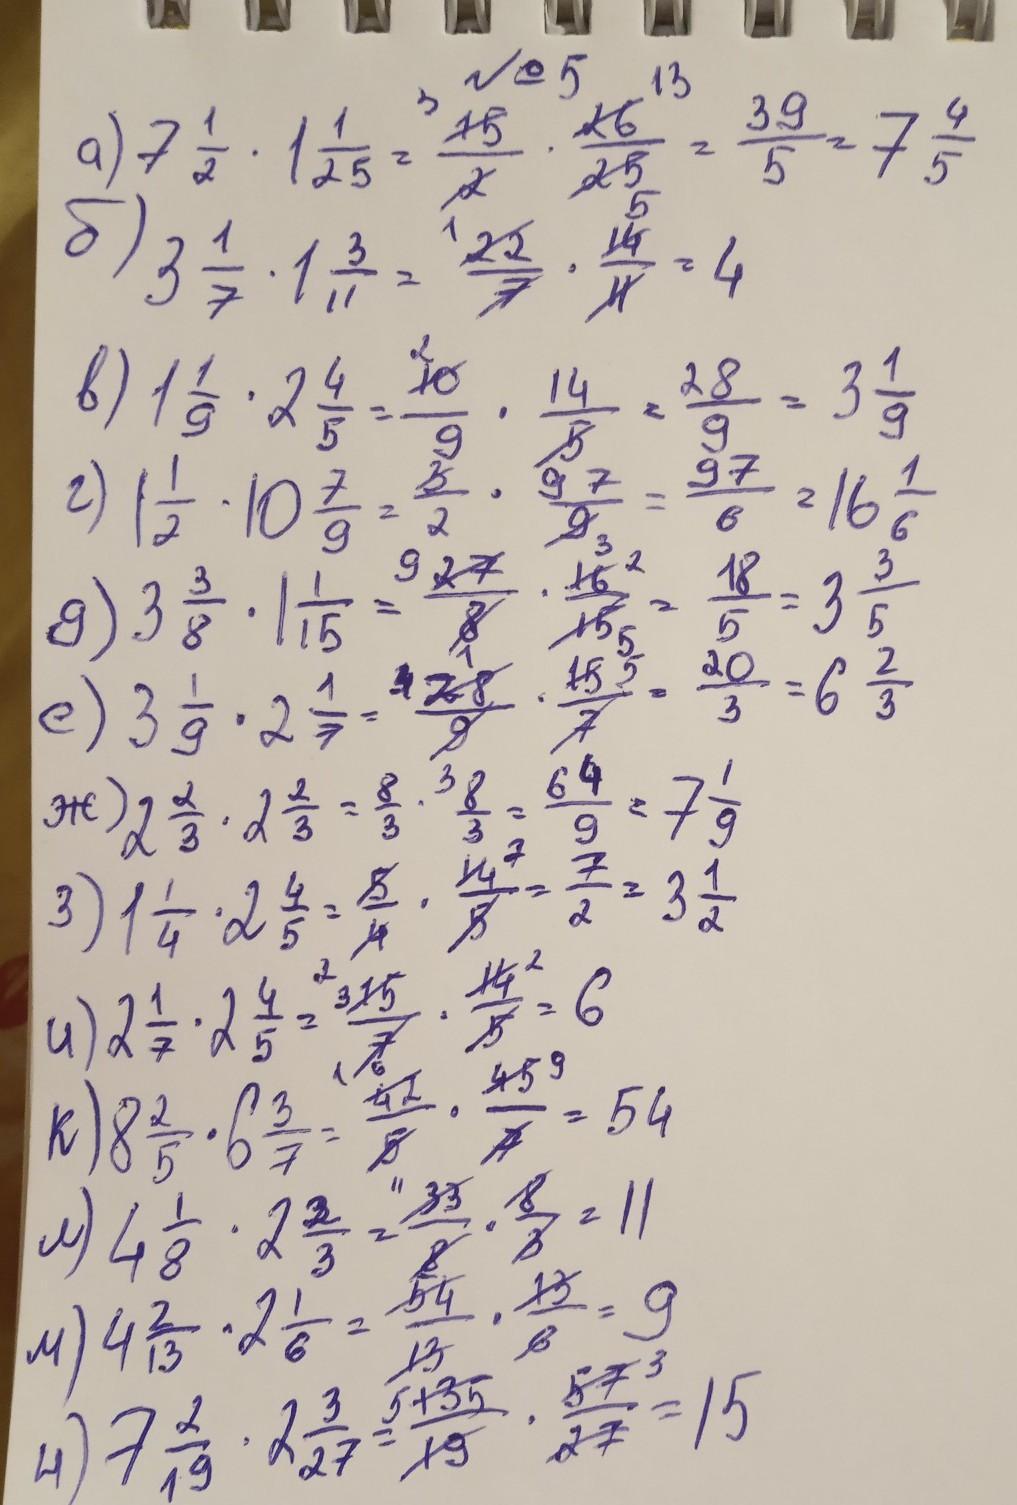 №5
а) 7 1/2 · 1 1/25 = 3 15/2 · 26/25 13 5 = 39/5 = 7 4/5
б) 3 1/7 · 1 3/11 = 1 22/7 · 14/11 = 4
в) 1 1/9 · 2 4/5 = 2 10/9 · 14/5 = 28/9 = 3 1/9
г) 1 1/2 · 10 7/9 = 3/2 · 97/9 3 = 97/6 = 16 1/6
д) 3 3/8 · 1 1/15 = 9 27/8 1 · 16/15 2 5 = 18/5 = 3 3/5
е) 3 1/9 · 2 1/7 = 4 28/9 · 15/7 5 = 20/3 = 6 2/3
ж) 2 2/3 · 2 2/3 = 8/3 · 8/3 = 64/9 = 7 1/9
з) 1 1/4 · 2 4/5 = 5/4 · 14/5 7 = 7/2 = 3 1/2
и) 2 1/7 · 2 4/5 = 3 15/7 · 14/5 2 = 6
к) 8 2/5 · 6 3/7 = 6 42/5 · 45/7 9 = 54
л) 4 1/8 · 2 2/3 = 11 33/8 · 8/3 = 11
м) 4 2/13 · 2 1/6 = 54/13 · 13/6 = 9
н) 7 2/19 · 2 3/27 = 5 135/19 · 57/27 3 = 15